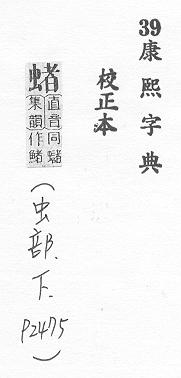 39康熙字典
校正本
蝫
直音同蠩
集韻作鯺
(虫部.下.P2475)